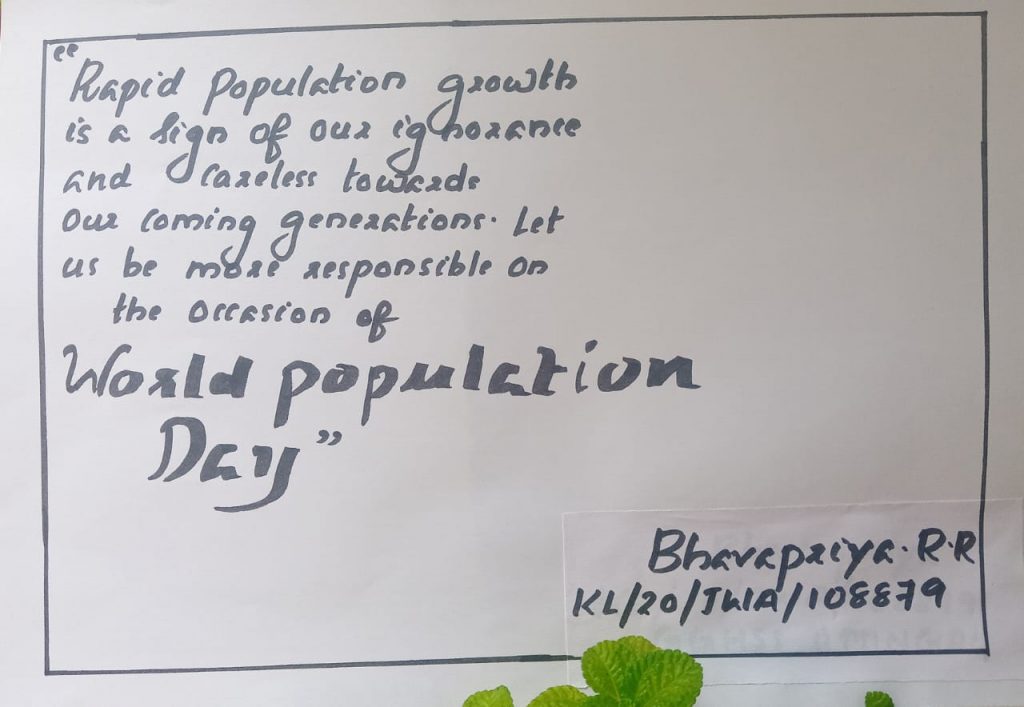 "Rapid Population growth
is a sign of our ignorance
and careless towards
our coming generations. Let
us be more responsible on
the occasion of
World population
Day"
Bhavapriya. R.R
KL/20/JWA/108879